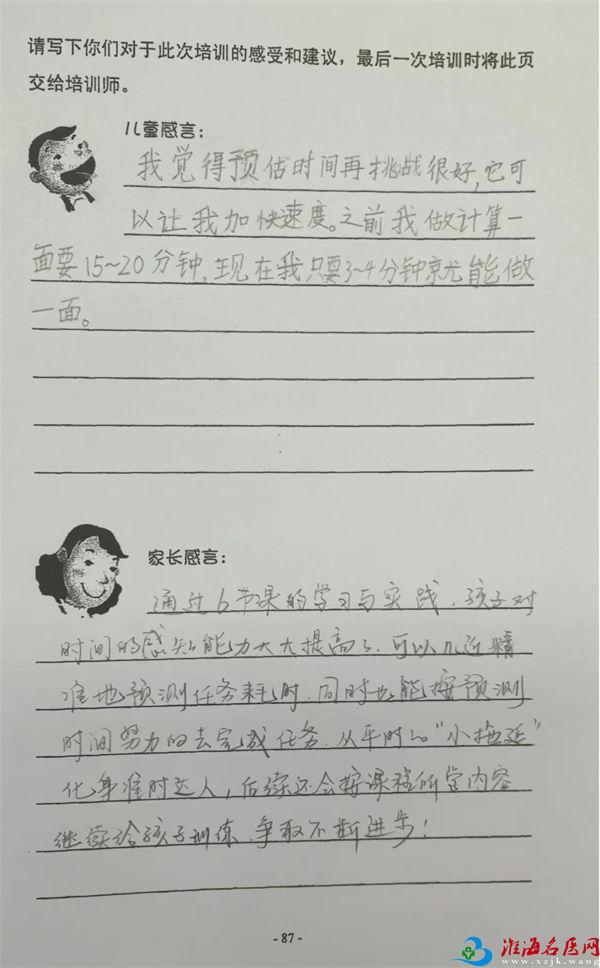 请写下你们对于此次培训的感受和建议，最后一次培训时将此页
交给培训师。
儿童感言：
我觉得预估时间再挑战很好，它可
以让我加快速度。之前我做计算一
面要15~20分钟，现在我只要3~4分钟就能做
一面。
家长感言：
通过6节课的学习与实践，孩子对
时间的感知能力大大提高了，可以几近精
准地预测任务耗时，同时也能按预测
时间努力的去完成任务，从平时的“小拖延”
化身准时达人，后续还会按课程所学内容
继续给孩子训练，争取不断进步！
- 87 -
淮海名医网
www.xzjk.wang